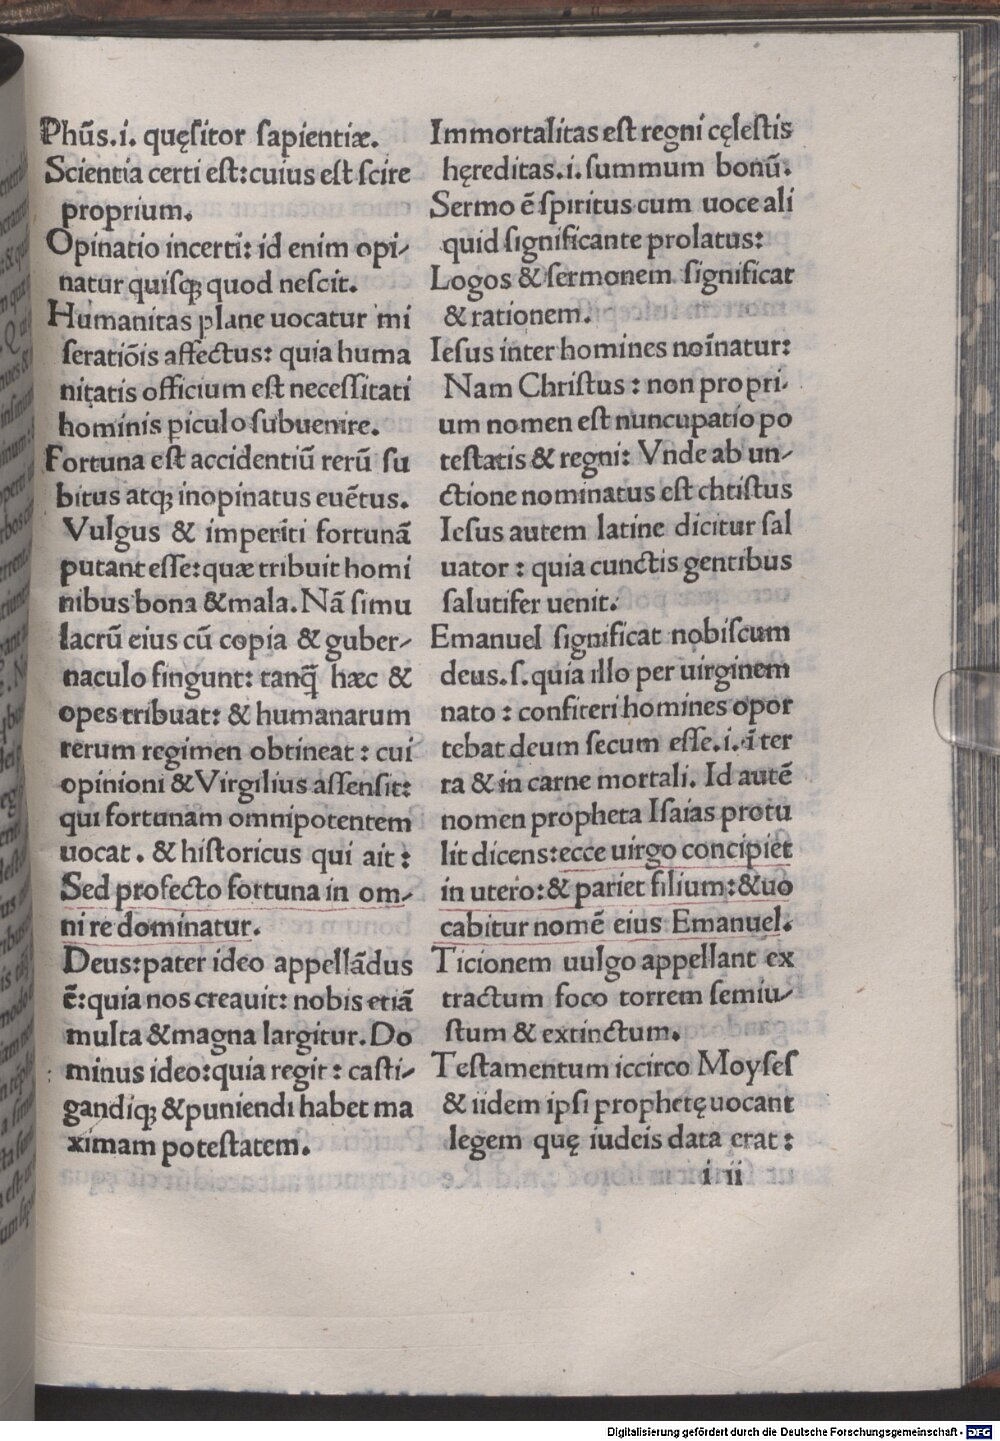 Phūs.i. quęſitor ſapientiæ.
Scientia certi eſt:cuius eſt ſcire
proprium.
Opinatio incerti: id enim opi-
natur quiſqꝫ quod neſcit.
Humanitas plane uocatur mi
ſeratiōis affectus: quia huma
nitatis officium eſt neceſſitati
hominis ꝑiculo ſubuenire.
Fortuna eſt accidentiū rerū ſu
bitus atqꝫ inopinatus euētus.
Vulgus & imperiti fortunā
putant eſſe:quæ tribuit homi
nibus bona & mala. Nā ſimu
lacrū eius cū copia & guber-
naculo fingunt: tanq̄ hæc &
opes tribuat: & humanarum
rerum regimen obtineat : cui
opinioni & Virgilius aſſenſit:
qui fortunam omnipotentem
uocat . & hiſtoricus qui ait :
Sed profecto fortuna in om-
ni re dominatur.
Deus:pater ideo appellādus
ē:quia nos creauit: nobis etiā
multa & magna largitur. Do
minus ideo:quia regit: caſti-
gandiqꝫ & puniendi habet ma
ximam poteſtatem.
Immortalitas eſt regni cęleſtis
hęreditas.i. ſummum bonū.
Sermo ē ſpiritus cum uoce ali
quid ſignificante prolatus:
Logos & ſermonem ſignificat
& rationem.
Ieſus inter homines noīnatur:
Nam Chriſtus : non propri-
um nomen eſt nuncupatio po
teſtatis & regni: Vnde ab un-
ctione nominatus eſt chtiſtus
Ieſus autem latine dicitur ſal
uator : quia cunctis gentibus
ſalutifer uenit.
Emanuel ſignificat nobiſcum
deus.ſ. quia illo per uirginem
nato : confiteri homines opor
tebat deum ſecum eſſe.i. ī ter
ra & in carne mortali. Id autē
nomen propheta Iſaias protu
lit dicens:ecce uirgo concipiet
in utero:& pariet filium:& uo
cabitur nomē eius Emanuel.
Ticionem uulgo appellant ex
tractum foco torrem ſemiu-
ſtum & extinctum.
Teſtamentum iccirco Moyſeſ
& iidem ipſi prophetę uocant
legem quę iudeis data erat :
i ii
Digitalisierung gefördert durch die Deutsche Forschungsgemeinschaft - DFG